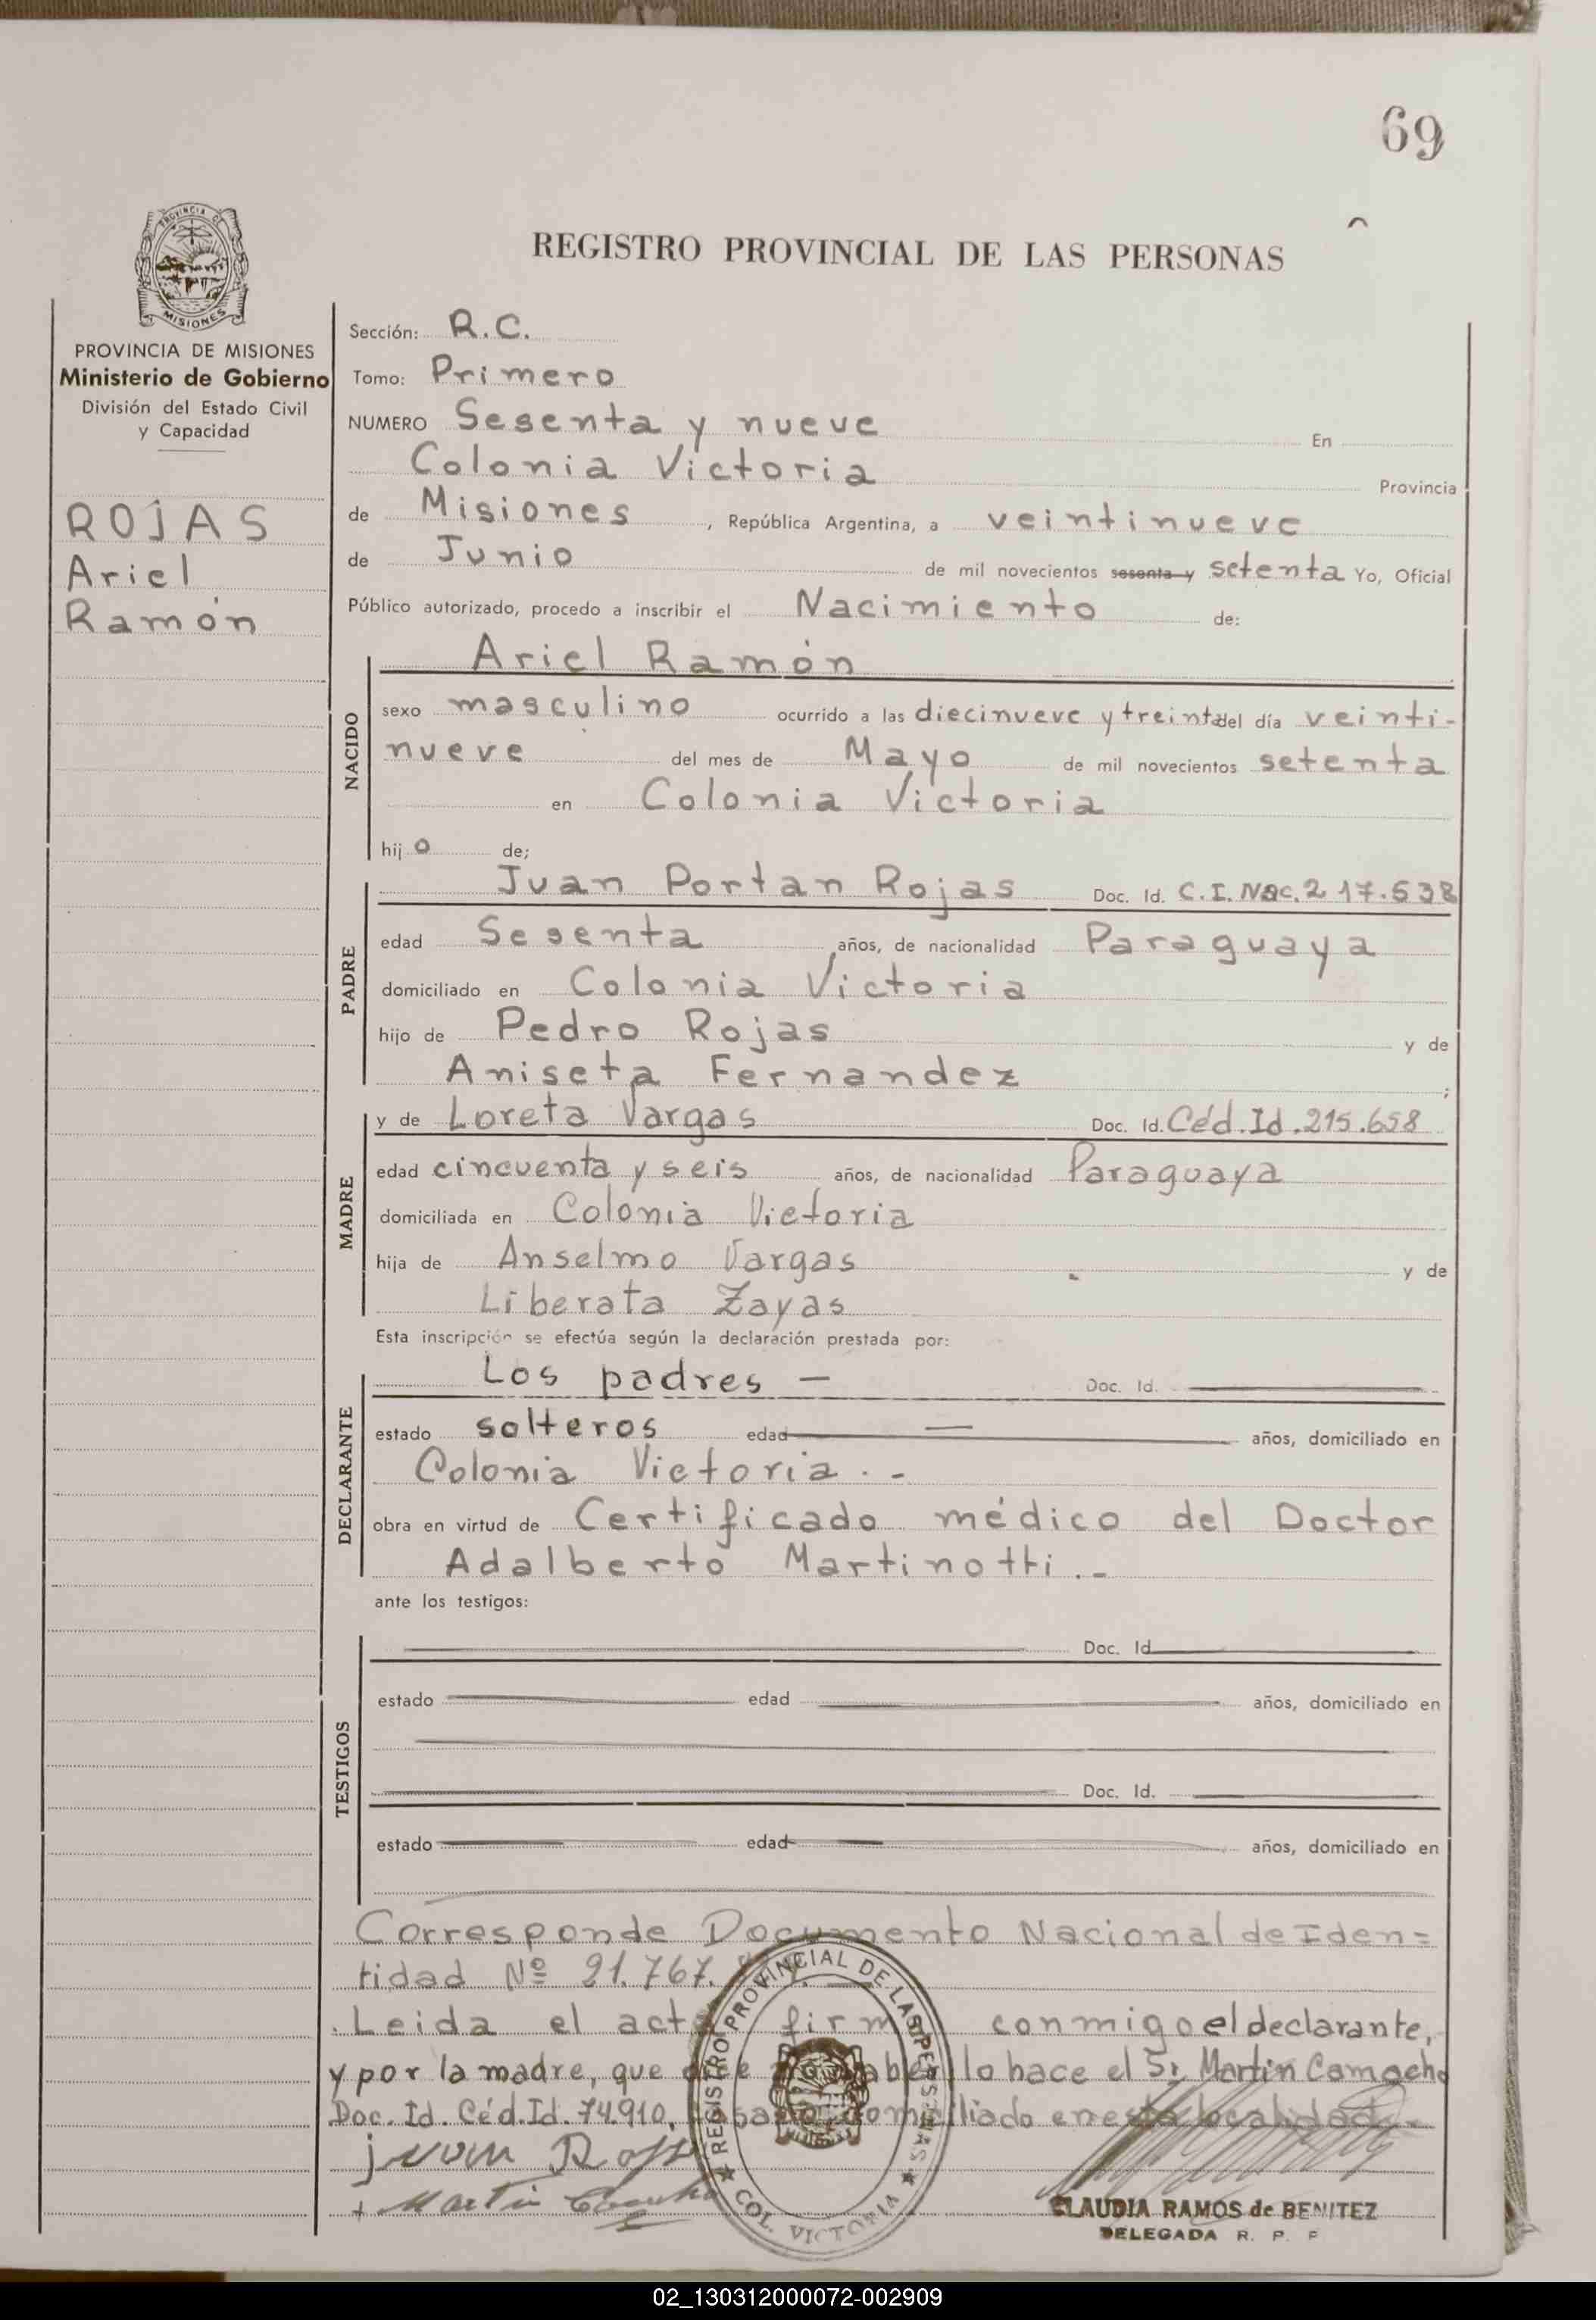 69
REGISTRO PROVINCIAL DE LAS PERSONAS
PROVINCIA DE MISIONES
PROVINCIA DE MISIONES
Ministerio de Gobierno
División del Estado Civil
y Capacidad
ROJAS
Ariel
Ramón
Sección: R.C.
Tomo: Primero
NUMERO Sesenta y nueve En
Colonia Victoria Provincia
de Misiones, República Argentina, a veintinueve
de Junio de mil novecientos sesenta y setenta Yo, Oficial
Público autorizado, procedo a inscribir el Nacimiento de:
NACIDO
Ariel Ramón
sexo masculino ocurrido a las diecinueve y treinta del día veinti-
nueve del mes de Mayo de mil novecientos setenta
en Colonia Victoria
hijo de;
PADRE
Juan Portan Rojas Doc. Id. C.I. Nac. 217.538
edad Sesenta años, de nacionalidad Paraguaya
domiciliado en Colonia Victoria
hijo de Pedro Rojas y de
Aniseta Fernandez;
MADRE
y de Loreta Vargas Doc. Id. Céd. Id. 215.658
edad cincuenta y seis años, de nacionalidad Paraguaya
domiciliada en Colonia Victoria
hija de Anselmo Vargas y de
Liberata Zayas
Esta inscripción se efectúa según la declaración prestada por:
DECLARANTE
Los padres — Doc. Id. —
estado solteros edad — años, domiciliado en
Colonia Victoria.-
obra en virtud de Certificado médico del Doctor
Adalberto Martinotti.-
ante los testigos:
TESTIGOS
Doc. Id
estado edad años, domiciliado en
Doc. Id.
estado edad años, domiciliado en
Corresponde Documento Nacional de Iden=
tidad Nº 21.767.
Leida el acta firm conmigo el declarante,
y por la madre, que dice no saber lo hace el Sr Martin Camacho
Doc. Id. Céd. Id. 74.910, domiciliado en esta localidad.-
juan Rojas
Martin Camacho
REGISTRO PROVINCIAL DE LAS PERSONAS
COL. VICTORIA
CLAUDIA RAMOS de BENITEZ
DELEGADA R. P. P
02_130312000072-002909